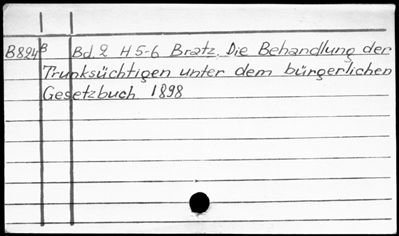 B824B Bd.2 H 5-6 Bratz, Die Behandlung der
Trunksüchtigen unter dem bürgerlichen
Gesetzbuch 1898